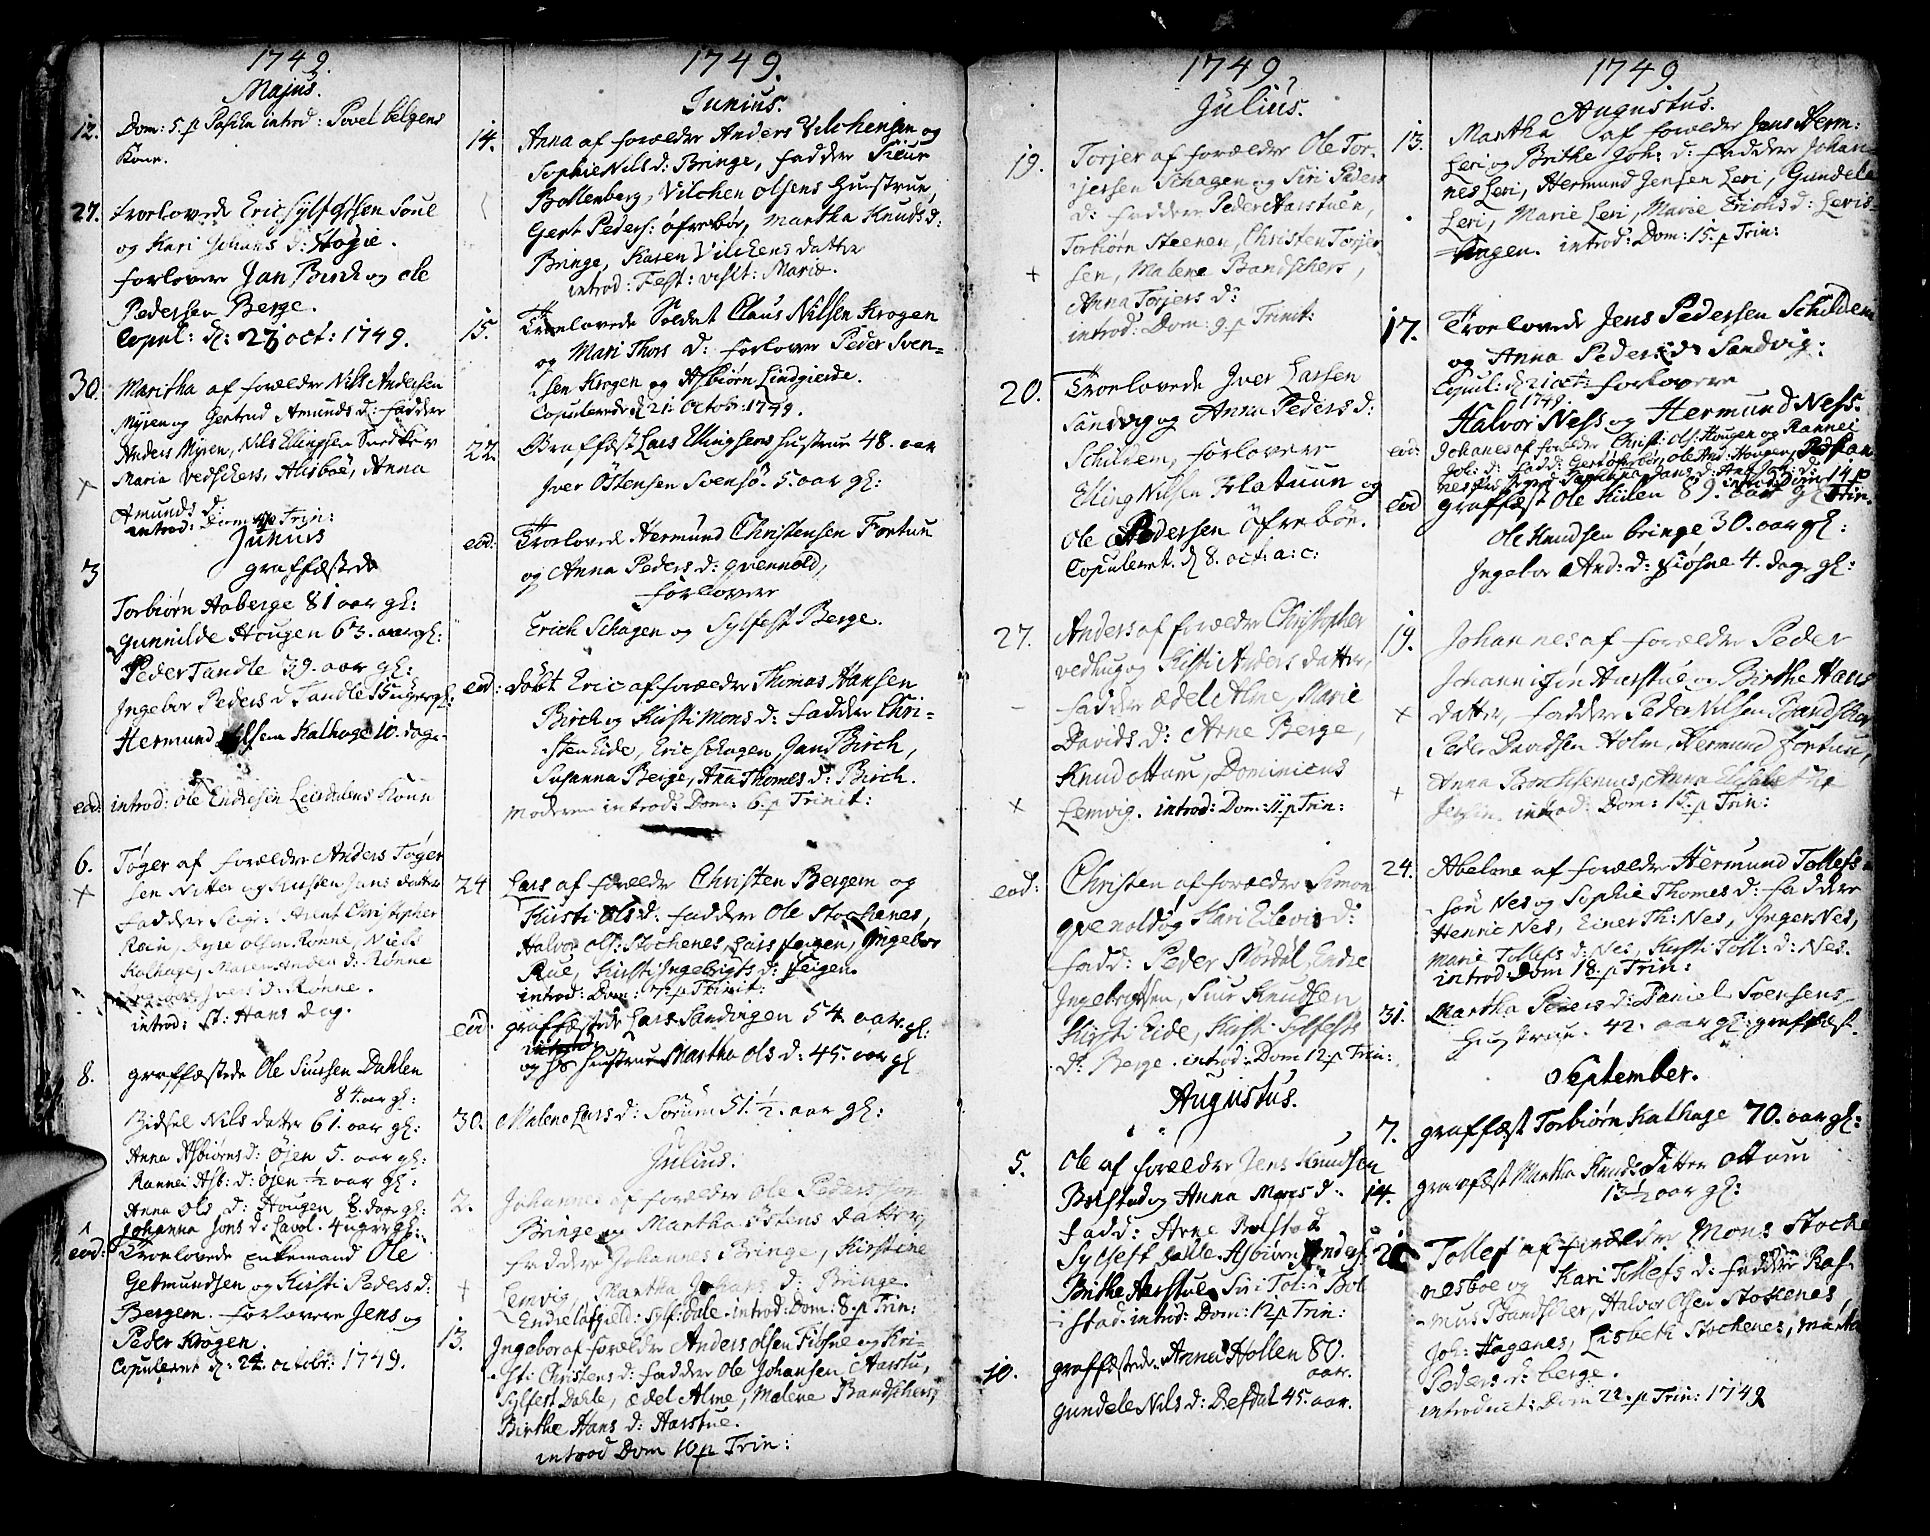 1749.
Majus.
12. Dom: 5. p Pascha introd: Povel belgens
Kone.
27. troelovede Eric Sylfestsen Soul
og Kari Johans d: Høgie.
forlovere Jan Birch og Ole
Pedersen Berge.
Copul: d: 26 oct: 1749.
30. Maritha af forældre Nils Andersen
Myren og Gertrud Amunds d: faddere
Anders Myren, Nils Ellingsen
Maria Vedschers, Anna
Amunds d:
introd: Dom p Trin:
Junius
3 graffæstede
Torbiørn Aaberge 81 aar gl:
Gunnilde Hougen 63. aar gl:
Peder Tandle 39. aar gl:
Ingebor Peders d Tandle 15 uger gl:
Hermund Kalhage 10. dage.
eod: introd: Ole Endresen Leirdalens Konn
6. Tøger af forældre Anders Tøger
sen Nitter og Kirsten Jans datter
faddere Sr: Christopher
Rein, Olsen Rønne, Niels
Kalhage, Maren Anden d: Rønne
Ivers d: Rønne.
introd: St: Hans dag.
8. graffæstede Ole Siursen Dahlen
84. aar gl:
Bidsel Nils datter 61. aar gl:
Anna Asbiørns d: Øjen 5. aar gl:
Rannei Asb: d: Øjen ½ aar gl:
Anna Ols d: Hougen 8. dage gl:
Johanna Jons d: Lavol. 4 uger gl:
eod: Troelovede Enkemand Ole
Getmundsen og Kirsti Peders d:
Bergem. forlovere Jens og
Peder Krogen.
Copuleret d: 22 octobr: 1749.
1749.
Junius.
14. Anna af forældre Anders Vilchensen og
Sophie Nils d: Bringe, faddere Siur
Bollenberg, Vilchen Olsens Hustrue,
Gert Peders: Øfrebør, Martha Knuds d:
Bringe, Karen Vilchens datter
introd: Fest: visit: Mariæ.
15. Troelovede Soldat Claus Nilsen Krogen
og Mari Thors d: forlovere Peder Sven-
sen Krogen og Asbiørn Lindgierde.
Copulerede d 21 Octobr: 1749.
22. Graffæst Lars Ellingsens Hustrue 48. aar
Iver Östensen Svensö 5. aar gl:
eod: Troelovede Hermund Christensen Fortun
og Anna Peders d: Qvennold,
forlovere
Erich Schagen og Sylfest Berge.
eod: døbt Eric af forældre Thomas Hansen
Birch og Kirsti Mons d: faddere Chri-
sten Eide, Eric Schagen, Jan Birch,
Susanna Berge, Anna Thomes d: Birch.
Moderen introd: Dom: 6. p Trinit:
24. Lars af forældre Christen Bergem og
Kirsti Ols d: faddere Ole Stochenes,
Halvor Ols: Stochenes, Lars feigen, Ingebor
Rue, Kirsti Ingebrigts d: feigen.
introd: Dom: 7. p Trinit:
eod. graffæstede Lars Sandingen 54. aar gl:
og hs Hustrue Martha Ols d: 45. aar gl
30. Malene Lars d: Sørum 51. ½. aar gl:
Julius.
2. Johannes af forældre Ole Pederssen
Bringe og Martha Östens datter,
faddere Johannes Bringe, Kirstine
Lemvig, Martha d: Bringe.
Endre Sylf: Dale. introd: Dom: 8. p Trin:
13. Ingebor af forældre Anders Olsen Fiøsne og Kri-
st: Christens d: faddere Ole Johansen Aarstu,
Sylfest Dahle, Ædel Alme, Malene Bandschers,
Birthe Hans d: Aarstue.
introd Dom 10 p Trin:
1749.
Julius.
19. Torjer af forældre Ole Tor-
jersen Schagen og Siri Peders
d: faddere Peder Aarstuen,
Torbiørn Steenen, Christen Torjer-
sen, Malene Bandschers,
Anna Torjers d:
introd: Dom: 9. p Trinit:
20. Troelovede Iver Larsen
Sandvig og Anna Peders d:
Schildem, forlovere
Elling Nilsen Flatuun og
Ole Pedersen Öfrebön.
Copuleret. d 8. oct: a: c:
27. Anders af forældre Christopher
vedhug og Kisti Anders datter,
faddere Ædel Alme, Marie
Davids d: Arne Berge,
Knud Ottum, Dominicus
Lemvig. introd: Dom: 11 p Trin:
eod: Christen af forældre Simon
Qvenold og Kari Eilevs d:
fadd: Peder Mørdal, Endre
Ingebrigtsen, Siur Knudsen
Kirsti Eide, Kirsti Sylfests
d: Berge. introd: Dom 12 p Trin:
Augustus.
5. Ole af forældre Jens Knudsen
Bolstad og Anna Mons d:
fadd: Arne Bolstad
Sylfest Dalle, Asbiørn Anders:
Brithe Aarstue, Siri Tol: d Bol-
stad. introd: Dom: 12 p Trin:
10. graffæstede Anna Hollen 80.
aar.
Gundele Nils d: Defdal 45. aar.
1749.
Augustus.
13. Martha af forældre Jens Herm:
Leri og Brithe Joh: d: faddere Johan-
nes Leri, Hermund Jensen Leri, Gundela
Leri, Marie Leri, Marie Erichs d: Leris-
engen. introd: Dom: 15. p Trin:
17. Troelovede Jens Pedersen Schildem
og Anna Peders d: Sandvig:
Copul: d 21 oct: forlovere
1749.
Halvor Ness og Hermund Ness.
eod: Johanes af forældre Christ: Ols: Hougen og Rannei
Joh: d: fadd: Gert Øfrebør, Ole And: Hougen,
14 p
eod graffæst Ole Kiilen 89. aar gl: Trin.
Ole Knudsen bringe 30. aar gl:
Ingebor And: d: fiøsne 4. dage gl:
19. Johannes af forældre Peder
Johannisøn Aarstue og Birthe Hans
datter, faddere Peder Nilsen Bandscher
Peder Davidsen Holm, Hermund Fortun,
Anna Borchsenius, Anna Elisabeth
Jensin. introd: Dom: 15. p Trin:
24. Abelone af forældre Hermund Tollefs-
søn Nes og Sophie Thomes d: faddere
Henric Nes, Einer Th: Nes, Inger Nes,
Marie Tollefs d: Nes, Kirsti Toll: d: Nes.
introd: Dom 18. p Trin:
31. Martha Peders d: Daniel Svensens
Hustrue. 42. aar gl: graffæst.
September.
7. graffæst Torbiørn Kalhage 70. aar gl:
14. gravfæst Martha Knuds Datter Ottum
13 ½ aar gl:
21 Tollef af forældre Mons Stoche
nesboe og Kari Tollefs d: faddere Ras-
mus Bandscher, Halvor Olsen Stokenes,
Joh: Hagenes, Lisbeth Stochenes, Martha
Peders d: berge.
introduct: Dom 22. p Trin: 1749